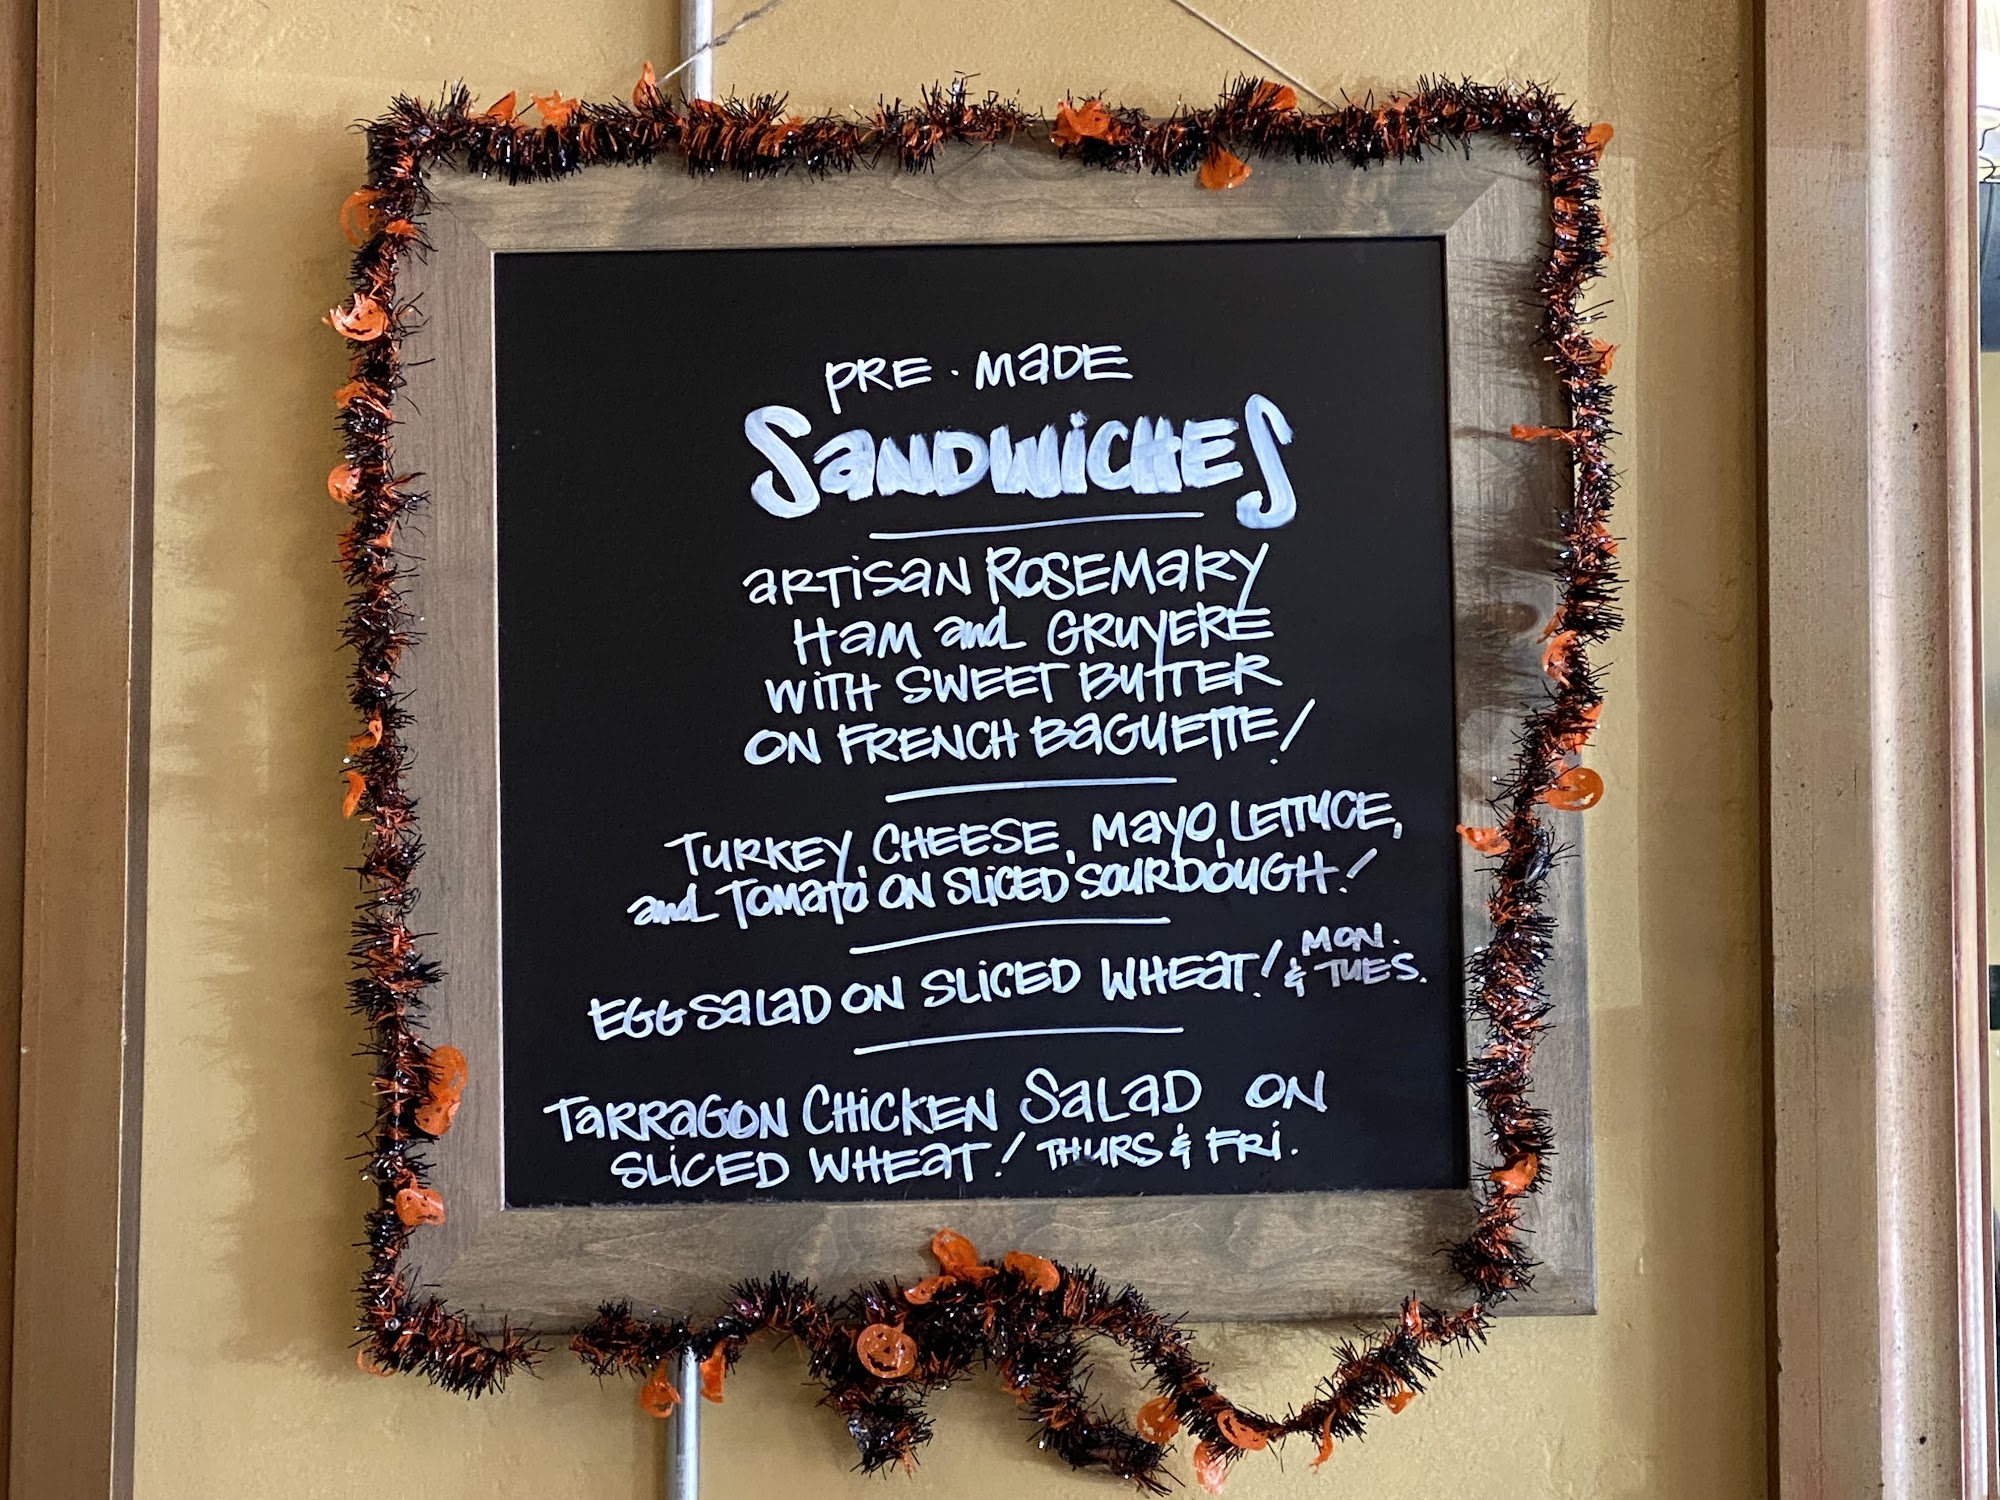 PRE-MADE
SANDWICHES
ARTISAN ROSEMARY
HAM and GRUYERE
WITH SWEET BUTTER
ON FRENCH BAGUETTE!
TURKEY, CHEESE, MAYO, LETTUCE,
and TOMATO ON SLICED SOURDOUGH!
EGG SALAD ON SLICED WHEAT! MON.
& TUES.
TARRAGON CHICKEN SALAD ON
SLICED WHEAT! THURS & FRI.